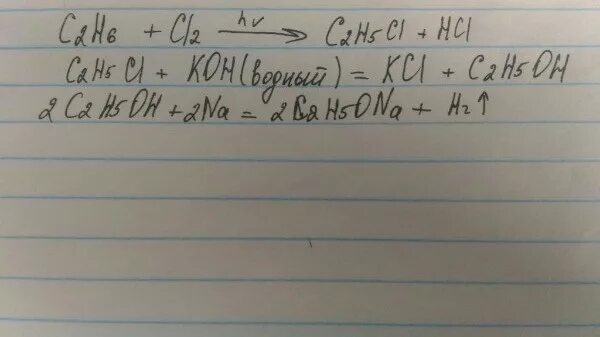 C2H6 + Cl2 hν→ C2H5Cl + HCl
C2H5Cl + KOH(водный) = KCl + C2H5OH
2C2H5OH + 2Na = 2C2H5ONa + H2↑